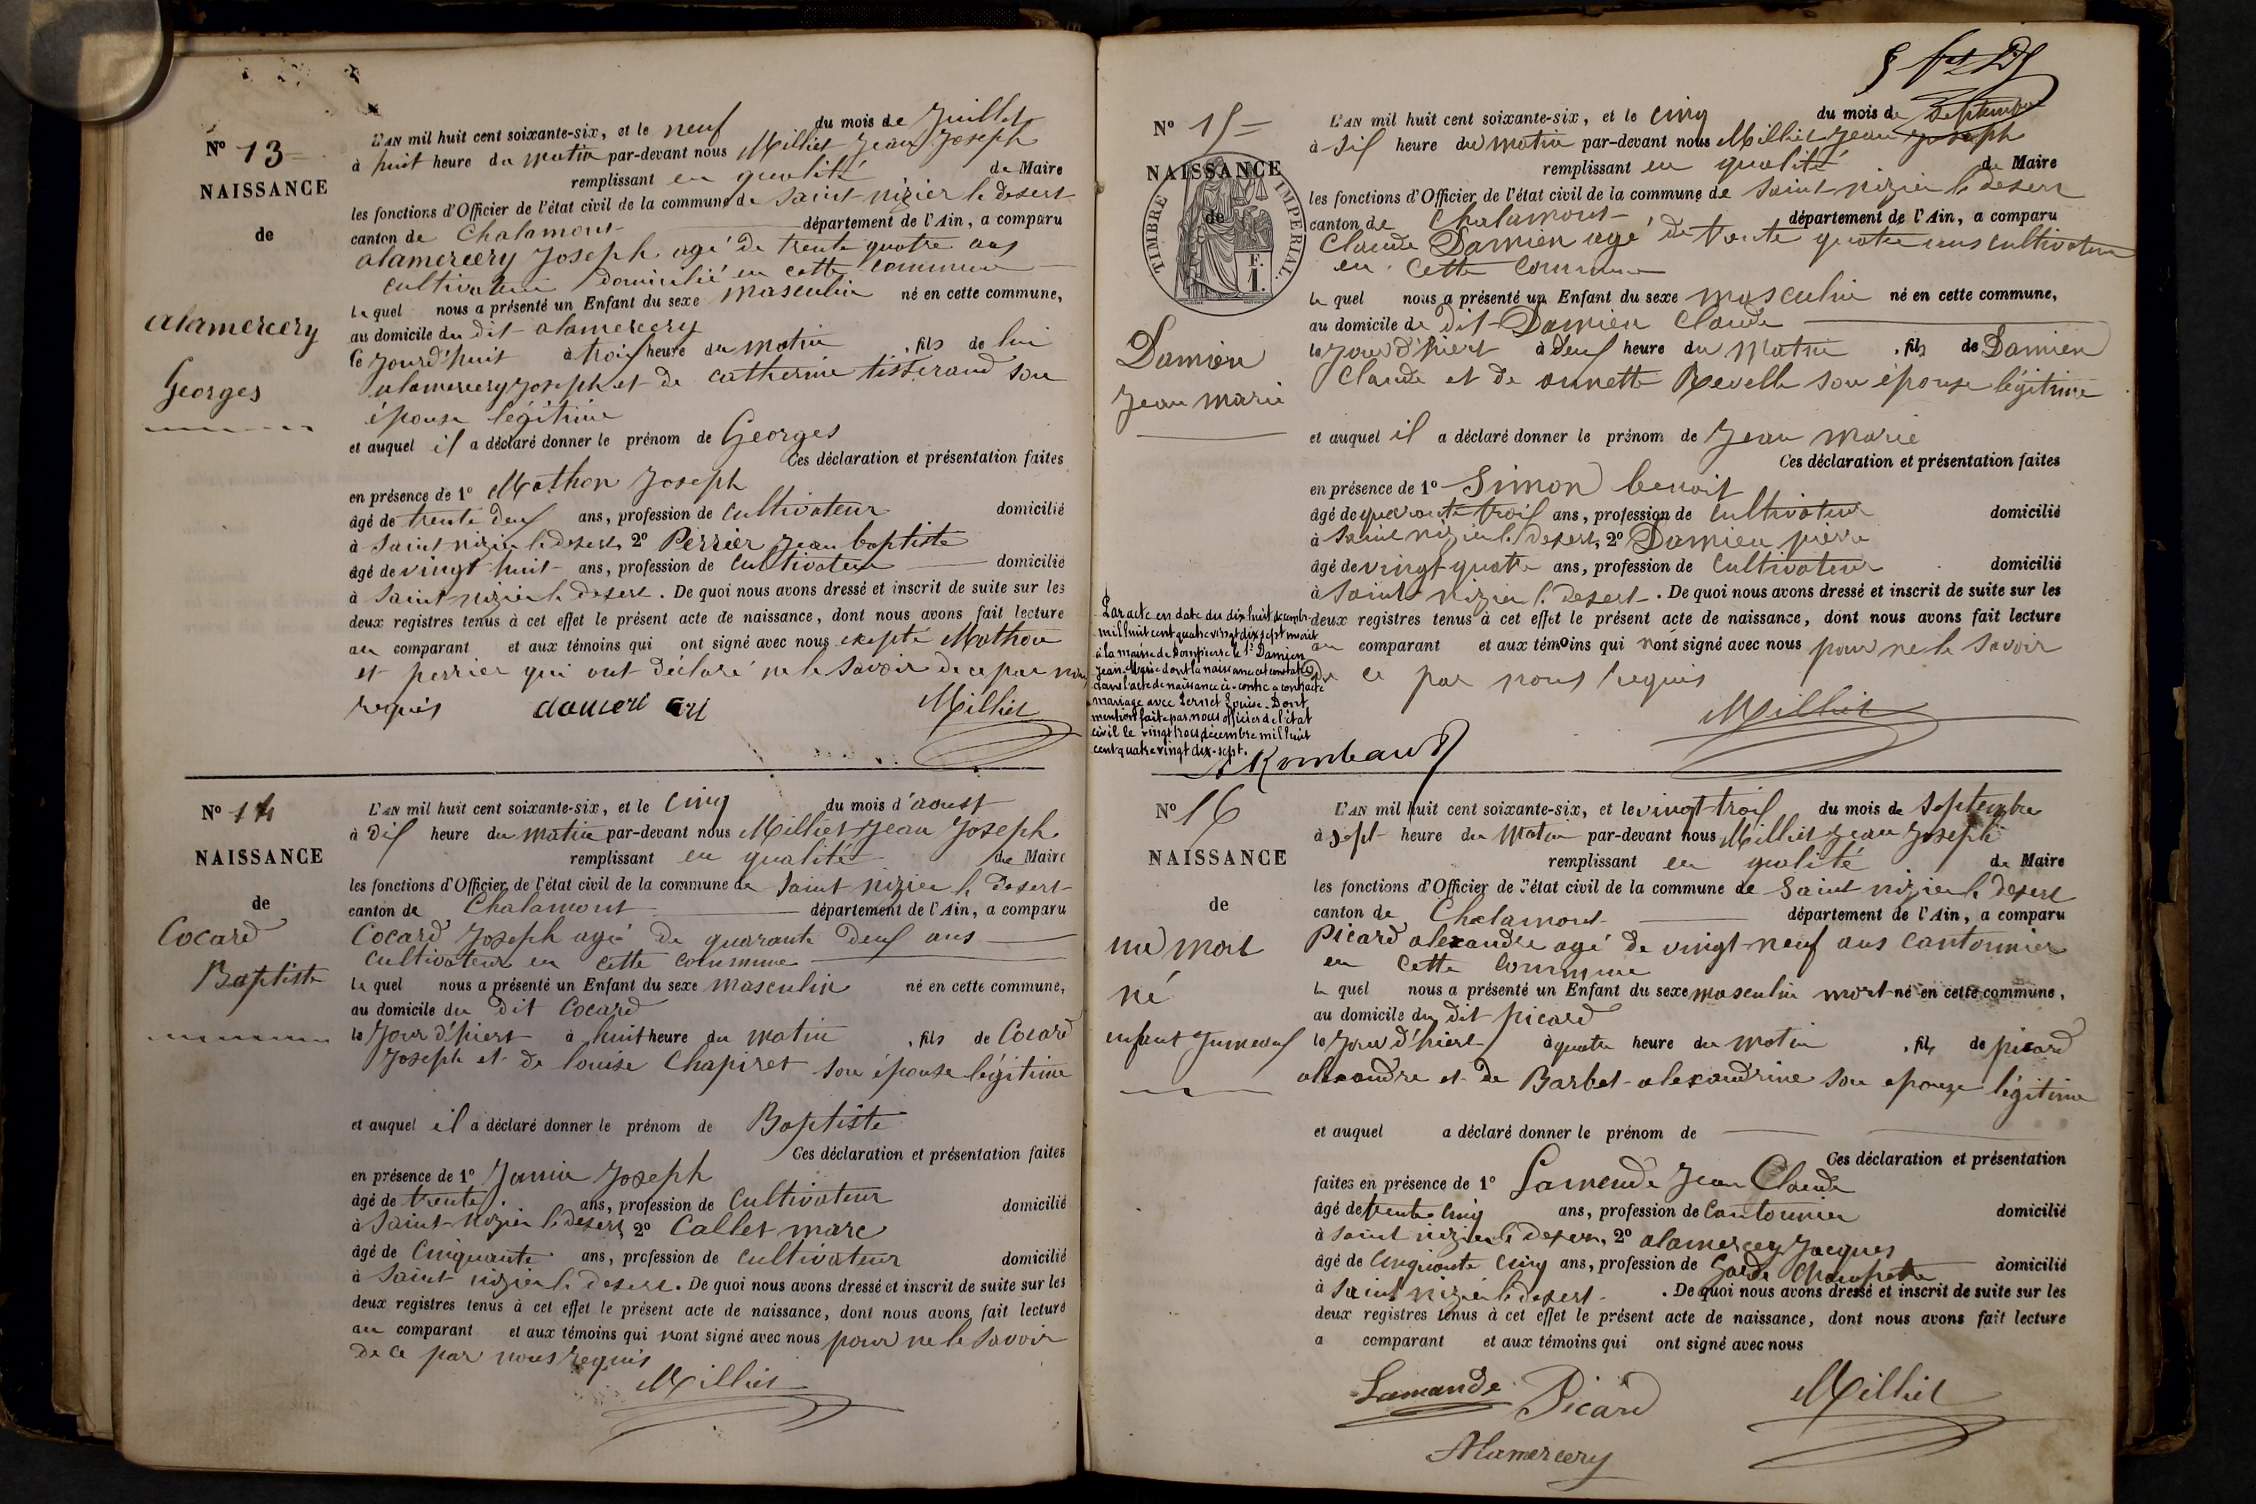 N° 13
NAISSANCE
de
alamercery
Georges
L'AN mil huit cent soixante-six, et le neuf du mois de Juillet
à huit heure du matin par-devant nous Milliet Jean Joseph
remplissant en qualité de Maire
les fonctions d'Officier de l'état civil de la commune de Saint nizier le desert
canton de Chalamont département de l'Ain, a comparu
alamercery Joseph agé de trente quatre ans
cultivateur domicilié en cette commune
le quel nous a présenté un Enfant du sexe masculin né en cette commune,
au domicile du dit alamercery
le Jourd'huit à trois heure du matin , fils de lui
alamercery Joseph et de catherine tisserand son
épouse légitime
et auquel il a déclaré donner le prénom de Georges
Ces déclaration et présentation faites
en présence de 1° Mathon Joseph
âgé de trente deux ans, profession de cultivateur domicilié
à Saint nizier le desert, 2° Perrier Jean baptiste
âgé de vingt huit ans, profession de cultivateur domicilié
à Saint nizier le desert. De quoi nous avons dressé et inscrit de suite sur les
deux registres tenus à cet effet le présent acte de naissance, dont nous avons fait lecture
au comparant et aux témoins qui ont signé avec nous exepté Mathon
et perrier qui ont déclaré ne le savoir de ce par nous
requis
Milliet
N° 14
NAISSANCE
de
Cocard
Baptiste
L'AN mil huit cent soixante-six, et le cinq du mois d'aoust
à dix heure du matin par-devant nous Milliet Jean Joseph
remplissant en qualité de Maire
les fonctions d'Officier de l'état civil de la commune de Saint nizier le desert
canton de Chalamont département de l'Ain, a comparu
Cocard Joseph agé de quarante deux ans
cultivateur en cette commune
le quel nous a présenté un Enfant du sexe masculin né en cette commune,
au domicile du dit Cocard
le Jour d'hiert à huit heure du matin , fils de Cocard
Joseph et de louise Chapiret son épouse légitime
et auquel il a déclaré donner le prénom de Baptiste
Ces déclaration et présentation faites
en présence de 1° Janin Joseph
âgé de trente ans, profession de Cultivateur domicilié
à Saint nizier le desert, 2° Callet marc
âgé de Cinquante ans, profession de cultivateur domicilié
à Saint nizier le desert. De quoi nous avons dressé et inscrit de suite sur les
deux registres tenus à cet effet le présent acte de naissance, dont nous avons fait lecture
au comparant et aux témoins qui nont signé avec nous pour ne le savoir
de ce par nous requis
Milliet
N° 15
NAISSANCE
de
TIMBRE IMPERIAL
F.
1.
Damien
Jean marie
L'AN mil huit cent soixante-six, et le cinq du mois de Septembre
à six heure du matin par-devant nous Milliet Jean Joseph
remplissant en qualité de Maire
les fonctions d'Officier de l'état civil de la commune de Saint nizier le desert
canton de Chalamont département de l'Ain, a comparu
Claude Damien agé de trente quatre ans cultivateur
en cette commune
le quel nous a présenté un Enfant du sexe masculin né en cette commune,
au domicile de dit Damien Claude
le Jour d'hiert à deux heure du matin , fils de Damien
Claude et de annette Revelle son épouse légitime
et auquel il a déclaré donner le prénom de Jean marie
Ces déclaration et présentation faites
en présence de 1° Simon benoit
âgé de quarante trois ans, profession de cultivateur domicilié
à Saint nizier le desert, 2° Damien pierre
âgé de vingt quatre ans, profession de Cultivateur domicilié
à Saint nizier le desert. De quoi nous avons dressé et inscrit de suite sur les
deux registres tenus à cet effet le présent acte de naissance, dont nous avons fait lecture
au comparant et aux témoins qui nont signé avec nous pour ne le savoir
de ce par nous requis
Milliet
Par acte en date du dix huit décembre
mil huit cent quatre vingt dix sept inscrit
à la mairie de Dompierre le Sr Damien
Jean-Marie dont la naissance est constatée
dans l'acte de naissance ci-contre a contracté
mariage avec Pernet Louise. Dont
mention faite par nous officier de l'état
civil le vingt trois décembre mil huit
cent quatre vingt dix-sept.
N° 16
NAISSANCE
de
un mort
né
enfant Jumeaux
L'AN mil huit cent soixante-six, et le vingt trois du mois de septembre
à sept heure du matin par-devant nous Milliet Jean Joseph
remplissant en qualité de Maire
les fonctions d'Officier de l'état civil de la commune de Saint nizier le desert
canton de Chalamont département de l'Ain, a comparu
Picard alexandre agé de vingt neuf ans cantonnier
en cette commune
le quel nous a présenté un Enfant du sexe masculin mort-né en cette commune,
au domicile du dit picard
le Jour d'hiert à quatre heure du matin , fils de picard
alexandre et de Barbet alexandrine son epouse légitime
et auquel a déclaré donner le prénom de
Ces déclaration et présentation
faites en présence de 1° Lamende Jean Claude
âgé de trente cinq ans, profession de Cantonnier domicilié
à Saint nizier le desert, 2° alamercery Jacques
âgé de Cinquante cinq ans, profession de Garde Champetre domicilié
à Saint nizier le desert. De quoi nous avons dressé et inscrit de suite sur les
deux registres tenus à cet effet le présent acte de naissance, dont nous avons fait lecture
a comparant et aux témoins qui ont signé avec nous
Lamande Picard Milliet
Alamercery